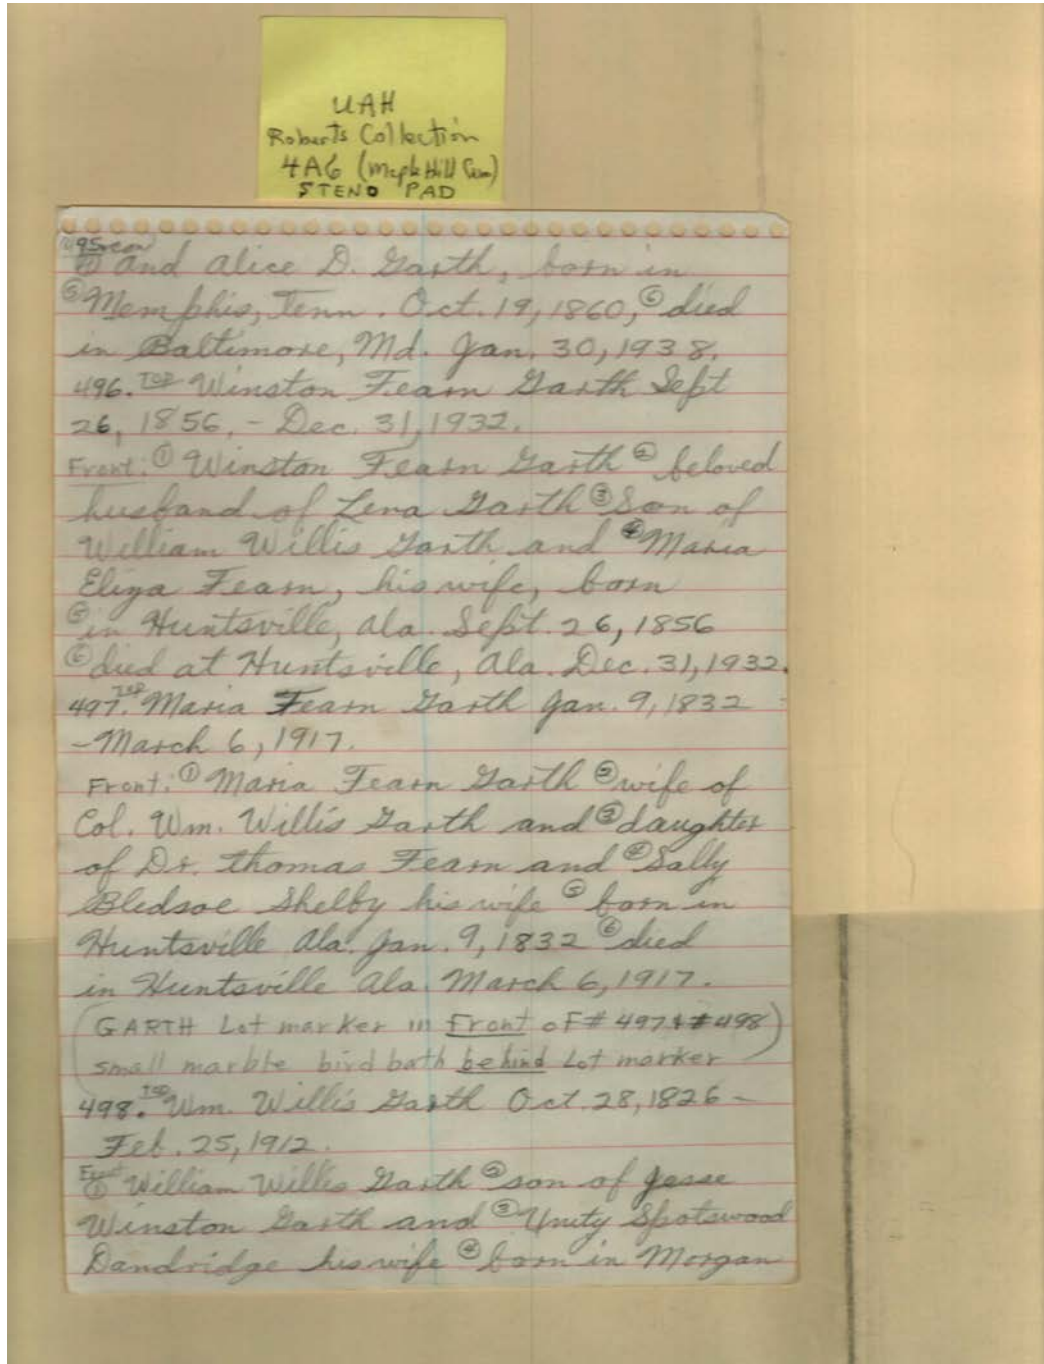 UAH
Roberts Collection
4A6 (Maple Hill Cem)
STENO PAD
495 con
④ and Alice D. Garth, born in
⑤ Memphis, Tenn. Oct. 19, 1860, ⑥ died
in Baltimore, Md. Jan. 30, 1938.
496. TOP Winston Fearn Garth Sept
26, 1856, - Dec. 31, 1932.
Front: ① Winston Fearn Garth ② beloved
husband of Lena Garth ③ Son of
William Willis Garth and ④ Maria
Eliza Fearn, his wife, born
⑤ in Huntsville, Ala. Sept. 26, 1856
⑥ died at Huntsville, Ala. Dec. 31, 1932.
497. TOP Maria Fearn Garth Jan. 9, 1832 -
- March 6, 1917.
Front: ① Maria Fearn Garth ② wife of
Col. Wm. Willis Garth and ③ daughter
of Dr. Thomas Fearn and ④ Sally
Bledsoe Shelby his wife ⑤ born in
Huntsville Ala. Jan. 9, 1832 ⑥ died
in Huntsville Ala. March 6, 1917.
(GARTH Lot marker in Front of # 497 & # 498)
small marble bird bath behind Lot marker
498. TOP Wm. Willis Garth Oct. 28, 1826 -
Feb. 25, 1912.
Front ① William Willis Garth ② son of Jesse
Winston Garth and ③ Unity Spotswood
Dandridge his wife ④ born in Morgan